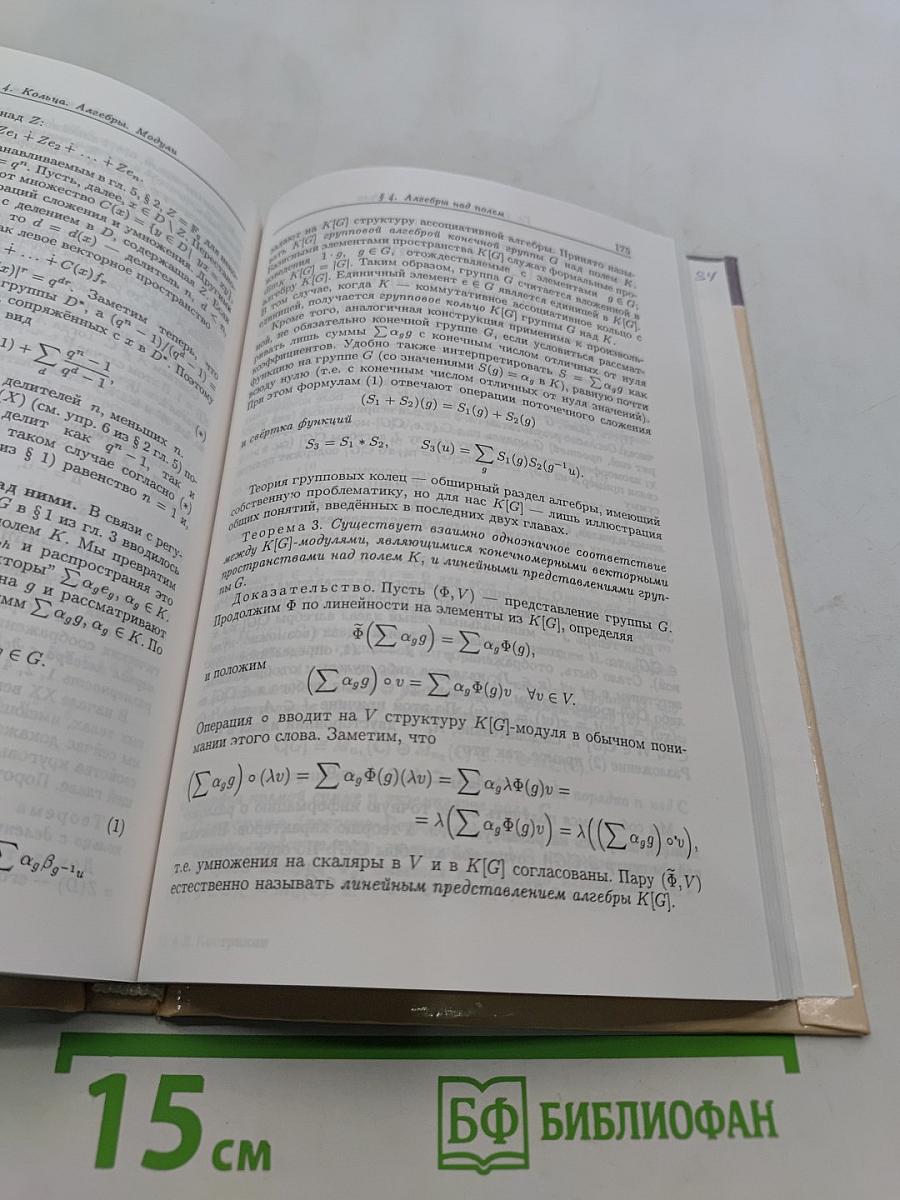 4. Кольца. Алгебры. Модули
над Z:
Ze₁ ∔ Ze₂ ∔ … ∔ Zeₙ.
= qⁿ. Пусть, далее, x ∈ D \ Z.
от множество C(x) = {y ∈ D
раций сложения и умножения
с делением в D, содержащая
то d = d(x) — делитель
ак левое векторное пространство
+ … + C(x)fᵣ
(x)|ʳ = qᵈʳ. Заметим теперь, что
группы D*, а (qⁿ − 1)/(qᵈ − 1) =
сопряжённых с x в D*. Поэтому
вид
1) + ∑_d (qⁿ − 1)/(qᵈ − 1), (*)
делителей n, меньших n.
(X) (см. упр. 6 из § 2 гл. 5) по-
делит как qⁿ − 1, так и
таком случае согласно (*)
из § 1) равенство n = 1 и,
ад ними. В связи с регу-
G в § 1 из гл. 3 вводилось
полем K. Мы превратим
oh и распространяя это
кторы" ∑ α_g e_g, α_g ∈ K.
на g и рассматривают
умм ∑ α_g g, α_g ∈ K. По
g ∈ G.
(1)
∑ α_g β_{g⁻¹u}
§ 4. Алгебры над полем
175
задают на K[G] структуру ассоциативной алгебры. Принято назы-
вать K[G] групповой алгеброй конечной группы G над полем K.
Базисными элементами пространства K[G] служат формальные про-
изведения 1 · g, g ∈ G, отождествляемые с элементами g ∈ G;
dim K[G] = |G|. Таким образом, группа G считается вложенной в
алгебру K[G]. Единичный элемент e ∈ G является единицей в K[G].
В том случае, когда K — коммутативное ассоциативное кольцо с
единицей, получается групповое кольцо K[G] группы G над K.
Кроме того, аналогичная конструкция применима к произволь-
ной, не обязательно конечной группе G, если условиться рассмат-
ривать лишь суммы ∑ α_g g с конечным числом отличных от нуля
коэффициентов. Удобно также интерпретировать S = ∑ α_g g как
функцию на группе G (со значениями S(g) = α_g в K), равную почти
всюду нулю (т.е. с конечным числом отличных от нуля значений).
При этом формулам (1) отвечают операции поточечного сложения
(S₁ + S₂)(g) = S₁(g) + S₂(g)
и свёртка функций
S₃ = S₁ * S₂, S₃(u) = ∑_g S₁(g)S₂(g⁻¹u).
Теория групповых колец — обширный раздел алгебры, имеющий
собственную проблематику, но для нас K[G] — лишь иллюстрация
общих понятий, введённых в последних двух главах.
Теорема 3. Существует взаимно однозначное соответствие
между K[G]-модулями, являющимися конечномерными векторными
пространствами над полем K, и линейными представлениями груп-
пы G.
Доказательство. Пусть (Φ, V) — представление группы G.
Продолжим Φ по линейности на элементы из K[G], определяя
Φ̃(∑ α_g g) = ∑ α_g Φ(g),
и положим
(∑ α_g g) ∘ v = ∑ α_g Φ(g)v ∀v ∈ V.
Операция ∘ вводит на V структуру K[G]-модуля в обычном пони-
мании этого слова. Заметим, что
(∑ α_g g) ∘ (λv) = ∑ α_g Φ(g)(λv) = ∑ α_g λΦ(g)v =
= λ(∑ α_g Φ(g)v) = λ((∑ α_g g) ∘ v),
т.е. умножения на скаляры в V и в K[G] согласованы. Пару (Φ̃, V)
естественно называть линейным представлением алгебры K[G].
34
15 см
БФ БИБЛИОФАН